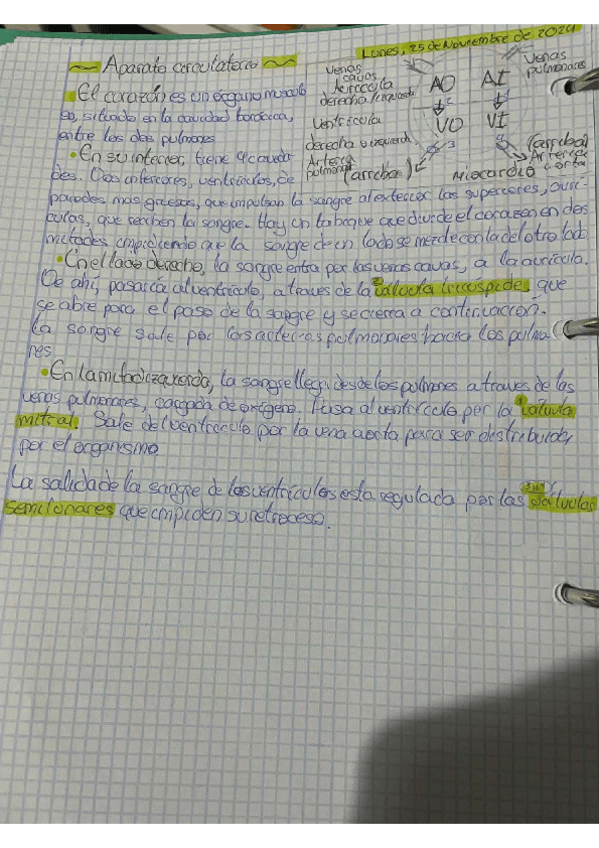 Lunes, 25 de Noviembre de 2024
~ Aparato circulatorio ~
• El corazón es un órgano muscu
so, situado en la cavidad torácica,
entre los dos pulmones
• En su interior, tiene 4 cavida
des. Dos inferiores, ventrículos, de
paredes mas gruesas, que impulsan la sangre al exterior. Las superiores, aurí-
culas, que reciben la sangre. Hay un tabique que divide el corazón en dos
mitades impidiendo que la sangre de un lado se mezcle con la del otro lado.
• En el lado derecho, la sangre entra por las venas cavas, a la aurícula.
De ahí, pasaría al ventrículo, a través de la válvula tricúspide, que
se abre para el paso de la sangre y se cierra a continuación.
La sangre sale por las arterias pulmonares hacia los pulmo
nes.
• En la mitad izquierda, la sangre llega desde los pulmones a traves de las
venas pulmonares, cargada de oxígeno. Pasa al ventrículo por la válvula
mitral. Sale del ventrículo por la vena aorta para ser distribuida
por el organismo
La salida de la sangre de los ventrículos esta regulada por las válvulas
semilunares que impiden su retroceso.
Venas
cavas
Aurícula
derecha/izquierda
Ventrícula
derecha o izquierda
Arteria
pulmonar (arriba)
AD AI
VD VI
3
Venas
pulmonares
(arriba)
Arteria
aorta
Miocardio